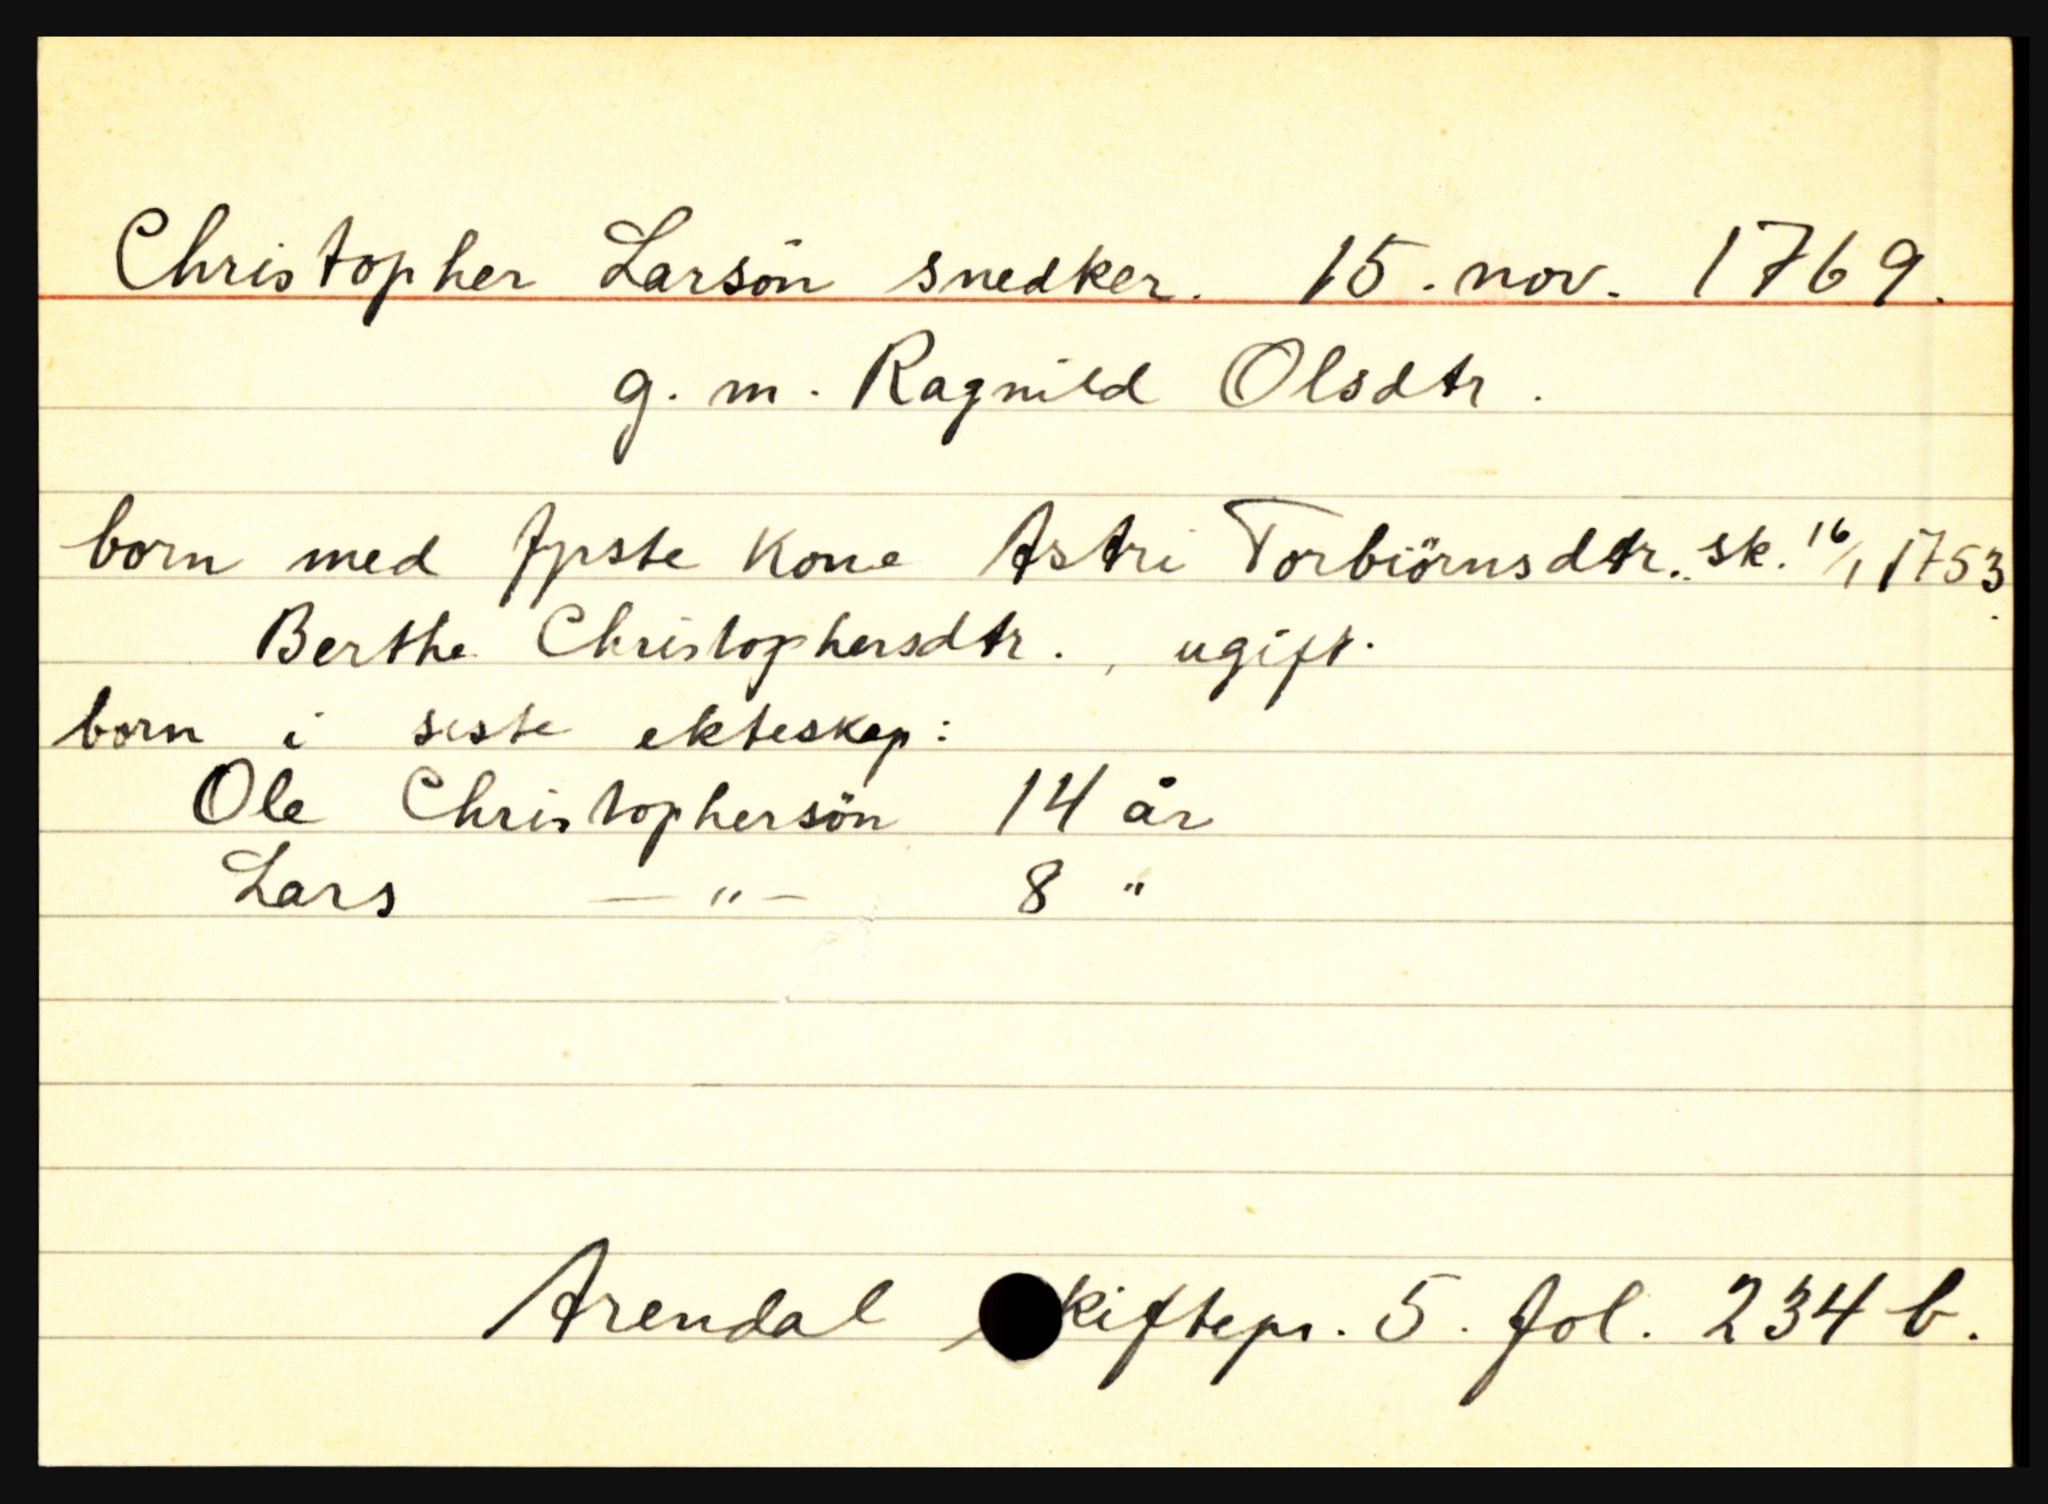 Christopher Larsön snedker. 15. nov. 1769.
g. m. Ragnild Olsdtr.
born med fyrste kone Astri Torbiörnsdtr. sk. 16/1 1753.
Berthe Christophersdtr., ugift.
born i siste ekteskap:
Ole Christophersön 14 år
Lars —"— 8 "
Arendal skiftepr. 5. fol. 234 b.